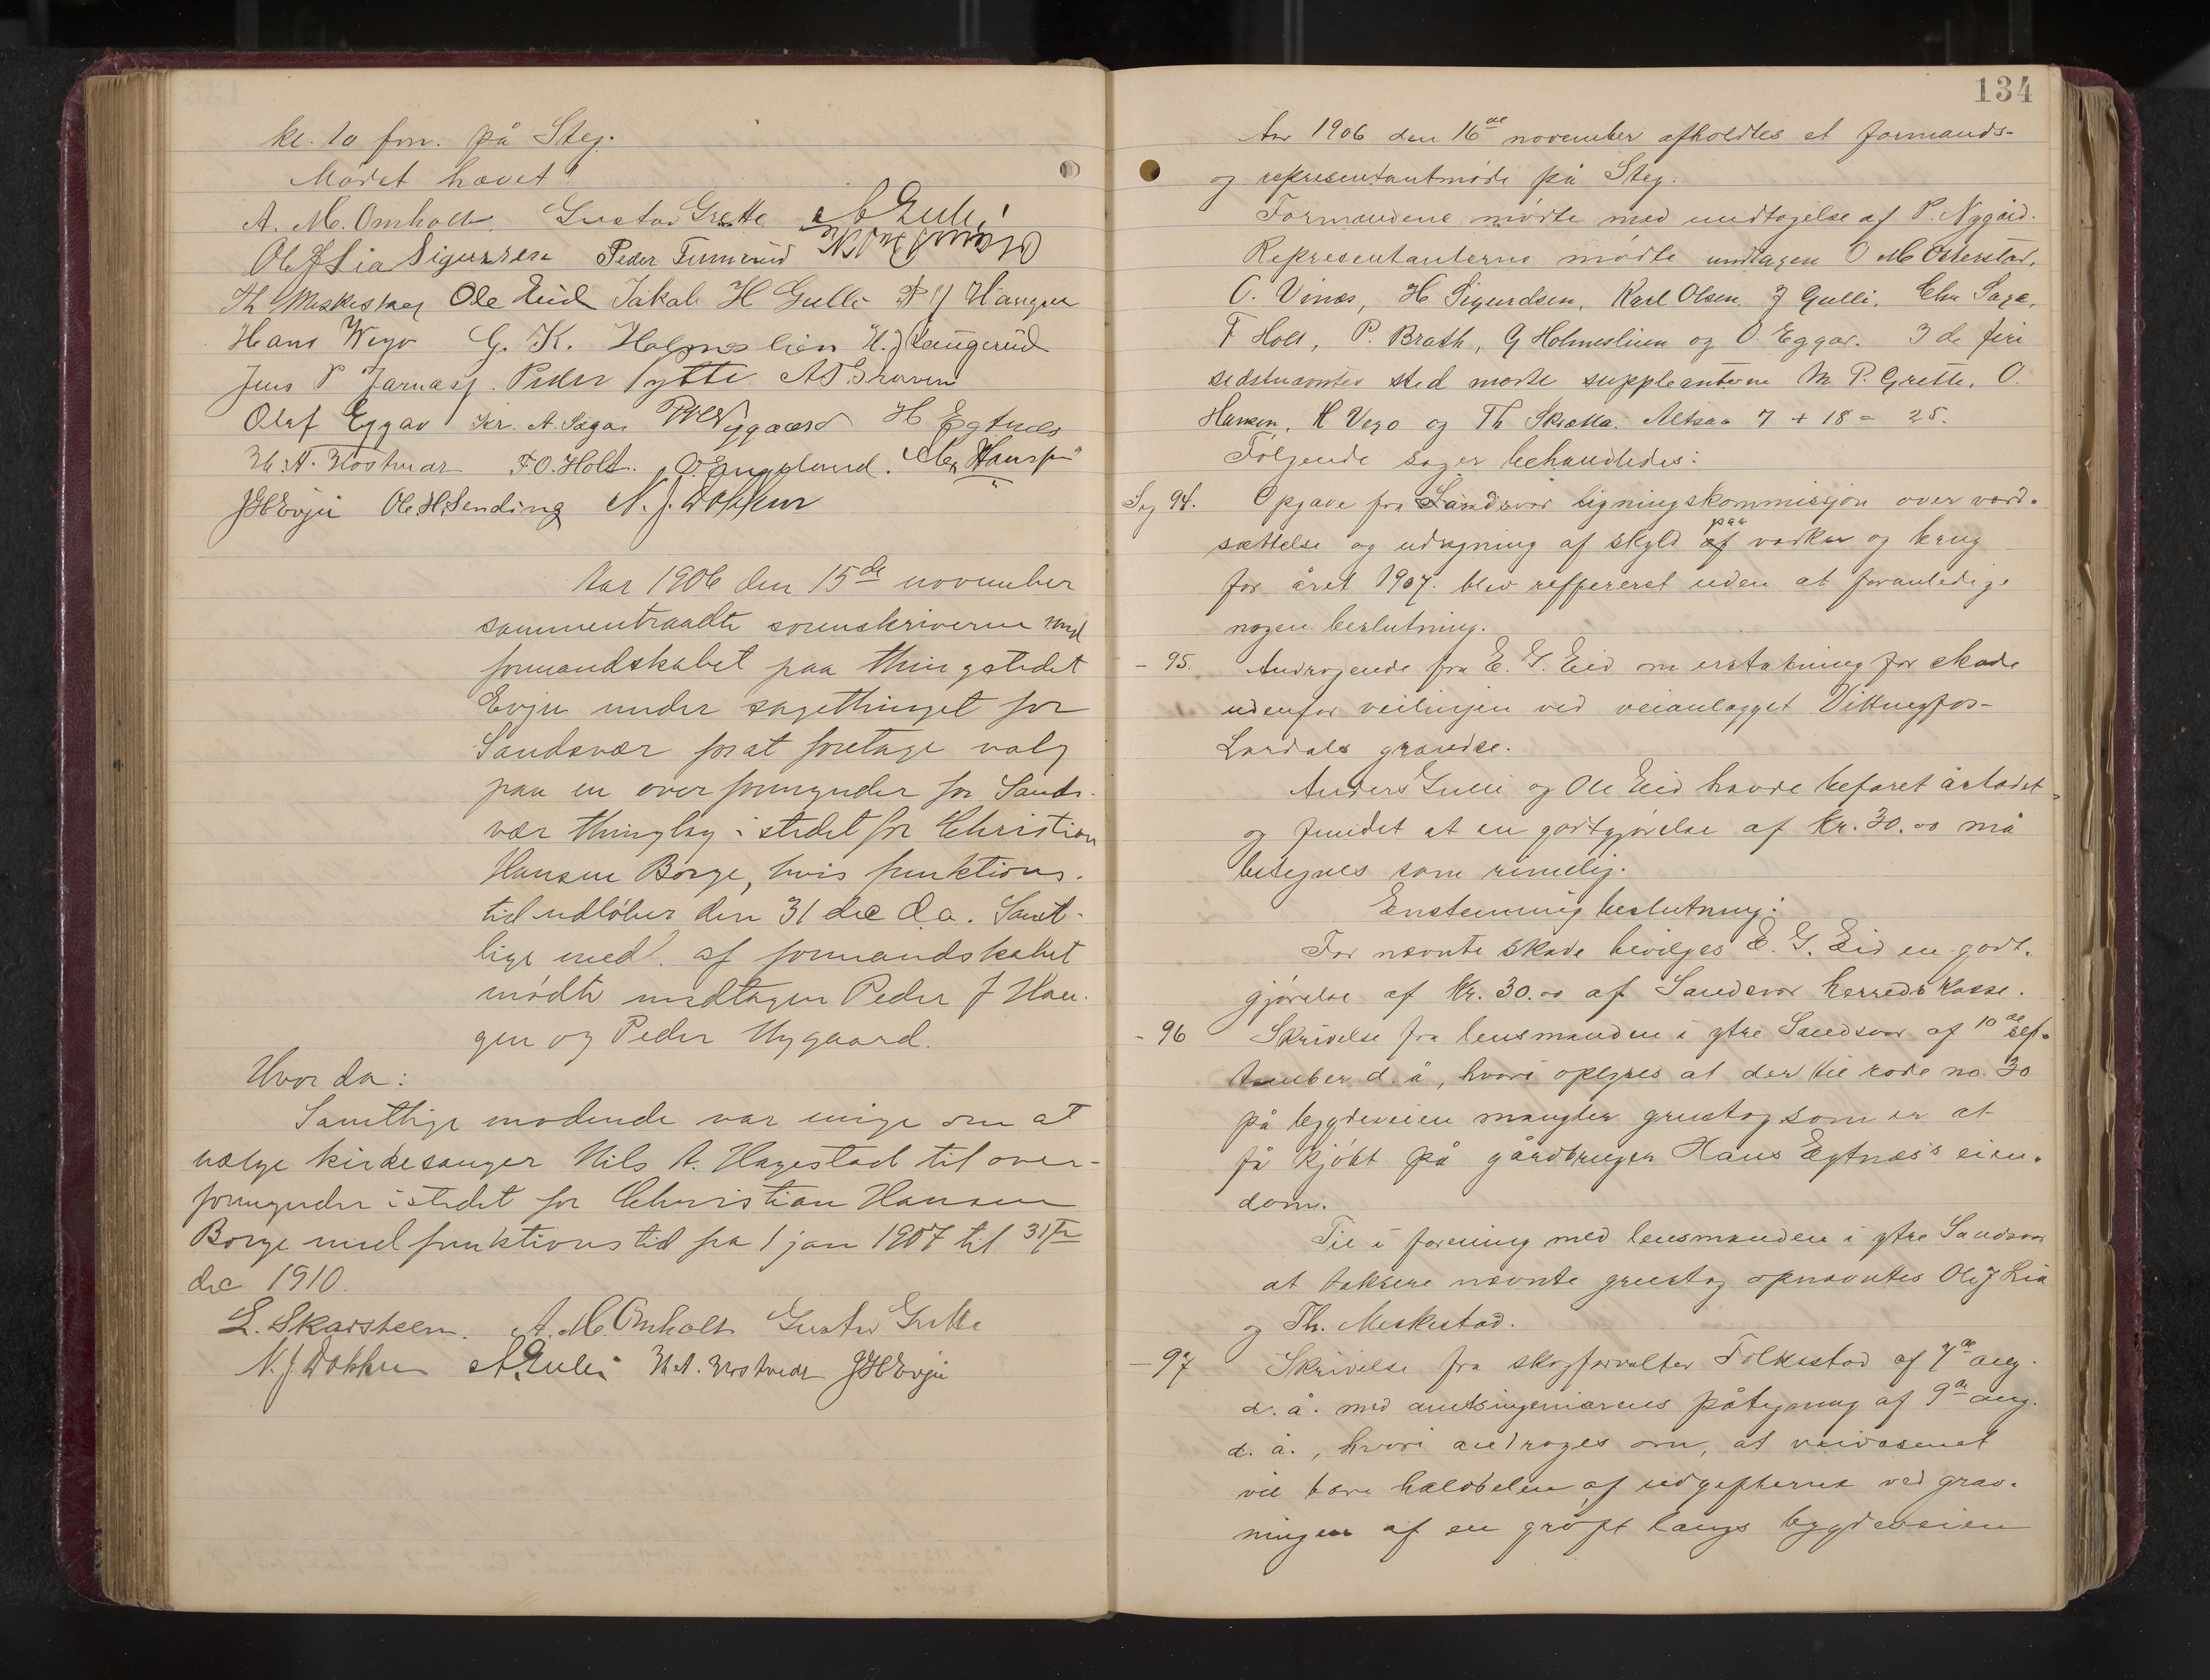 kl. 10 fm. på Steg.
Mødet hævet!
A. M. Omholt. Gustav Grette A Gulli
Ole J Lia Sigurdsen Peder Tummerud
Th Meskestad Ole Eid Jakob H Gulli P J Haugen
Hans Wego G. K. Holmeslien H. J Haugerud
Jens P Jarnæs. Peder Lytte A S Graven
Olaf Eggar Kr. A. Saga P Nygaard H Egtnæs
H. A. Hostvedt F. O. Holt. O. Engelund. Chr Hansen
J H Evju Ole H. Sending N. J. Dokken
Aar 1906 den 15de november
sammentraadte sorenskriveren med
formandskabet paa thingstedet
Evju under sagethinget for
Sandsvær for at foretage valg
paa en overformynder for Sands-
vær thinglag i stedet for Christian
Hansen Borge, hvis funktions-
tid udløber den 31 dec d.a. Samt-
lige medl. af formandskabet
mødte undtagen Peder J Hau-
gen og Peder Nygaard.
Hvor da:
Samtlige mødende var enige om at
vælge kirkesanger Nils A. Hagestad til over-
formynder istedet for Christian Hansen
Borge med funktionstid fra 1 jan 1907 til 31te
dec 1910.
L. Skarsteen. A. M. Omholt Gustav Grette
N. J. Dokken A. Gulli H. A. Hostvedt J H Evju
134
Aar 1906 den 16de november afholdtes et formands-
og representantmøde på Steg.
Formændene mødte med undtagelse af P. Nygård.
Representanterne mødte undtagen O M Østerstad,
O. Vinæs, H Sigurdsen, Karl Olsen, J Gulli, Chr Saga,
F Holt, P. Brath, G Holmeslien og O Eggar. I de fire
sidstnævntes sted mødte suppleanterne M P. Grette, O.
Hansen, H Vego og Th Skratta. Altsaa 7 + 18 = 25.
Følgende sager behandledes:
Sag 94. Opgave fra Sandsvær ligningskommisjon over værd-
sættelse og udregning af skyld paa værker og brug
for året 1907. blev reffereret uden at foranledige
nogen beslutning.
- 95. Andragende fra E. G. Eid om erstatning for skade
udenfor veilinjen ved veianlægget Vittingfos-
Lardals grændse.
Anders Gulli og Ole Eid havde befaret åstedet
og fundet at en godtgjørelse af kr. 30.00 må
betegnes som rimelig.
Enstemmig beslutning:
For nævnte skade bevilges E. G. Eid en godt-
gjørelse af kr. 30.00 af Sandsvær herredskasse.
- 96 Skrivelse fra lensmanden i ytre Sandsvær af 10de sep-
tember d. å, hvori oplyses at der til rode no. 30
på bygdeveien mangler grustag som er at
få kjøbt på gårdbruger Hans Egtnæs's eien-
dom.
Til i forening med lensmanden i ytre Sandsvær
at taksere nævnte grustag opnævntes Ole J Lia
og Th. Meskestad.
- 97 Skrivelse fra skogforvalter Folkestad af 7de aug.
d. å. med amtsingeniørens påtegning af 9de aug.
d. å., hvori andrages om, at veivæsenet
vil bære halvdelen af udgifterne ved grav-
ningen af en grøft langs bygdeveien